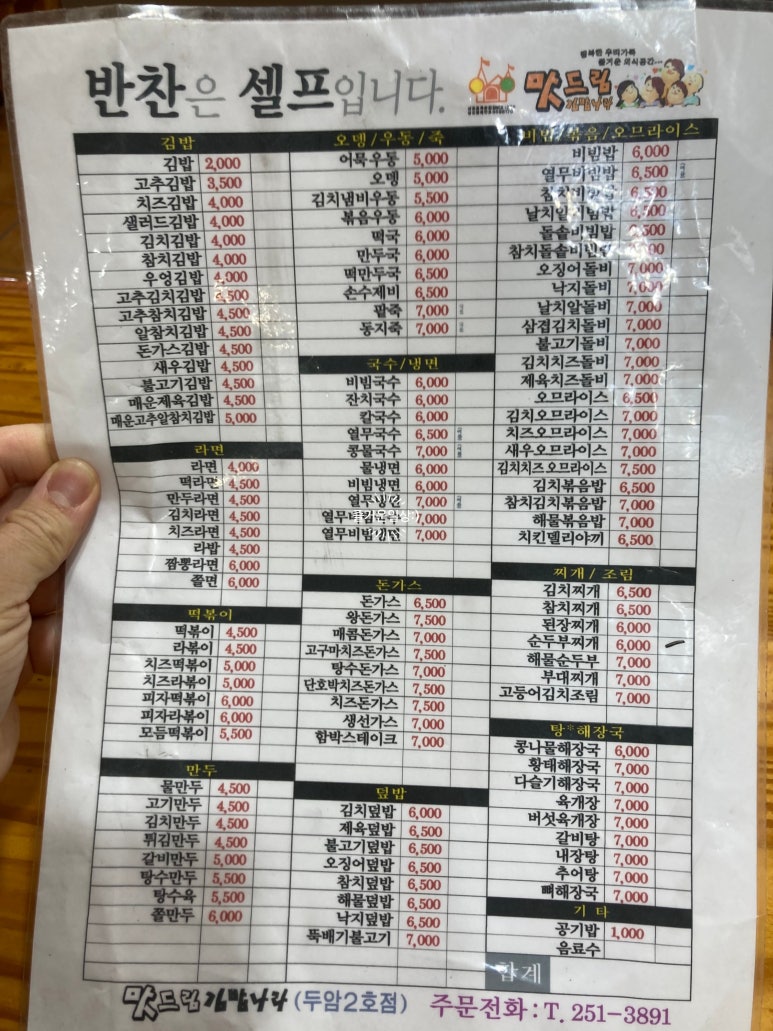 반찬은 셀프입니다.
행복한 우리가족
즐거운 외식공간...
맛드림
김밥나라
김밥
김밥 2,000
고추김밥 3,500
치즈김밥 4,000
샐러드김밥 4,000
김치김밥 4,000
참치김밥 4,000
우엉김밥 4,000
고추김치김밥 4,500
고추참치김밥 4,500
알참치김밥 4,500
돈가스김밥 4,500
새우김밥 4,500
불고기김밥 4,500
매운제육김밥 4,500
매운고추알참치김밥 5,000
라면
라면 4,000
떡라면 4,500
만두라면 4,500
김치라면 4,500
치즈라면 4,500
라밥 4,500
짬뽕라면 6,000
쫄면 6,000
떡볶이
떡볶이 4,500
라볶이 4,500
치즈떡볶이 5,000
치즈라볶이 5,000
피자떡볶이 6,000
피자라볶이 6,000
모듬떡볶이 5,500
만두
물만두 4,500
고기만두 4,500
김치만두 4,500
튀김만두 4,500
갈비만두 5,000
탕수만두 5,500
탕수육 5,500
쫄만두 6,000
오뎅/우동/죽
어묵우동 5,000
오뎅 5,000
김치냄비우동 5,500
볶음우동 6,000
떡국 6,000
만두국 6,000
떡만두국 6,500
손수제비 6,500
팥죽 7,000
동지죽 7,000
국수/냉면
비빔국수 6,000
잔치국수 6,000
칼국수 6,000
열무국수 6,500
콩물국수 7,000
물냉면 6,000
비빔냉면 6,000
열무냉면 7,000
열무 7,000
열무비빔냉면 7,000
돈가스
돈가스 6,500
왕돈가스 7,500
매콤돈가스 7,000
고구마치즈돈가스 7,500
탕수돈가스 7,000
단호박치즈돈가스 7,500
치즈돈가스 7,500
생선가스 7,000
함박스테이크 7,000
덮밥
김치덮밥 6,000
제육덮밥 6,500
불고기덮밥 6,500
오징어덮밥 6,500
참치덮밥 6,500
해물덮밥 6,500
낙지덮밥 6,500
뚝배기불고기 7,000
비빔/볶음/오므라이스
비빔밥 6,000
열무비빔밥 6,500
참치비빔밥 6,500
날치알비빔밥 6,500
돌솥비빔밥 6,500
참치돌솥비빔밥
오징어돌비 7,000
낙지돌비 7,000
날치알돌비 7,000
삼겹김치돌비 7,000
불고기돌비 7,000
김치치즈돌비 7,000
제육치즈돌비 7,000
오므라이스 6,500
김치오므라이스 7,000
치즈오므라이스 7,000
새우오므라이스 7,000
김치치즈오므라이스 7,500
김치볶음밥 6,500
참치김치볶음밥 7,000
해물볶음밥 7,000
치킨델리야끼 6,500
찌개/조림
김치찌개 6,500
참치찌개 6,500
된장찌개 6,000
순두부찌개 6,000
해물순두부 7,000
부대찌개 7,000
고등어김치조림 7,000
탕*해장국
콩나물해장국 6,000
황태해장국 7,000
다슬기해장국 7,000
육개장 7,000
버섯육개장 7,000
갈비탕 7,000
내장탕 7,000
추어탕 7,000
뼈해장국 7,000
기타
공기밥 1,000
음료수
합계
맛드림 김밥나라 (두암2호점) 주문전화:T. 251-3891